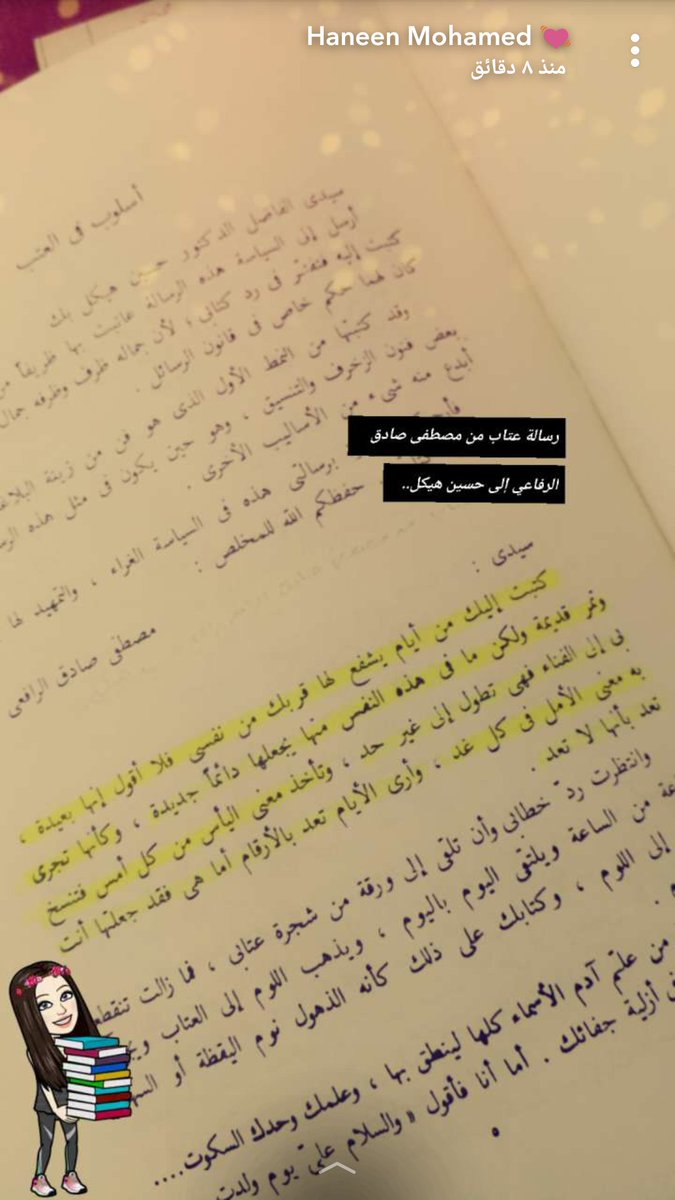 Haneen Mohamed
منذ ٨ دقائق
أسلوب فى العتب
سيدى الفاضل الدكتور حسين هيكل بك
أرسل إلى السياسة هذه الرسالة عاتبت بها ظريفاً من
كتبت إليه ففتر فى رد كتابى ؛ لأن جماله ظرف وظرفه جمال
كان لهما حكم خاص فى قانون الرسائل .
وقد كتبتها من النمط الأول الذى هو فن من زينة
بعض فنون الزخرف والتنسيق ، وهو حين يكون فى مثل هذه
أبدع منه شىء من الأساليب الأخرى .
برسالتى هذه فى السياسة الغراء ، والتمهيد لها
حفظكم الله للمخلص :
مصطفى صادق الرافعى
رسالة عتاب من مصطفى صادق
الرفاعي إلى حسين هيكل..
سيدى :
كتبت إليك من أيام يشفع لها قربك من نفسى فلا أقول إنها بعيدة ،
وتمر قديمة ولكن ما فى هذه النفس منها يجعلها دائماً جديدة ، وكأنها تجرى
بى إلى الفناء فهى تطول إلى غير حد ، وتأخذ معنى اليأس من كل أمس فتنسخ
به معنى الأمل فى كل غد ، وأرى الأيام تعد بالأرقام أما هى فقد جعلتها أنت
تعد بأنها لا تعد .
وانتظرت رد خطابى وأن تلقى إلى ورقة من شجرة عتابى ، فما زالت تنقطع
من الساعة ويلتقى اليوم باليوم ، ويذهب اللوم إلى العتاب
إلى اللوم ، وكتابك على ذلك كأنه الذهول نوم اليقظة أو
من علم آدم الأسماء كلها لينطق بها ، وعلمك وحدك السكوت....
أزلية جفائك . أما أنا فأقول « والسلام على يوم ولدت